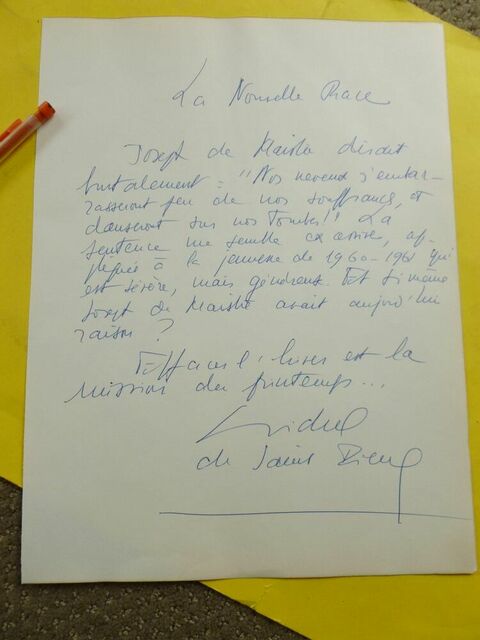 La Nouvelle Race
Joseph de Maistre disait
brutalement : "Nos neveux s'embar-
rasseront peu de nos souffrances, et
danseront sur nos Tombes!" La
sentence me semble excessive, ap-
pliquée à la jeunesse de 1960-1961 qui
est sévère, mais généreuse. Et si même
Joseph de Maistre avait aujourd'hui
raison ?
Effacer l'hiver est la
mission du printemps...
Michel
de Saint Pierre